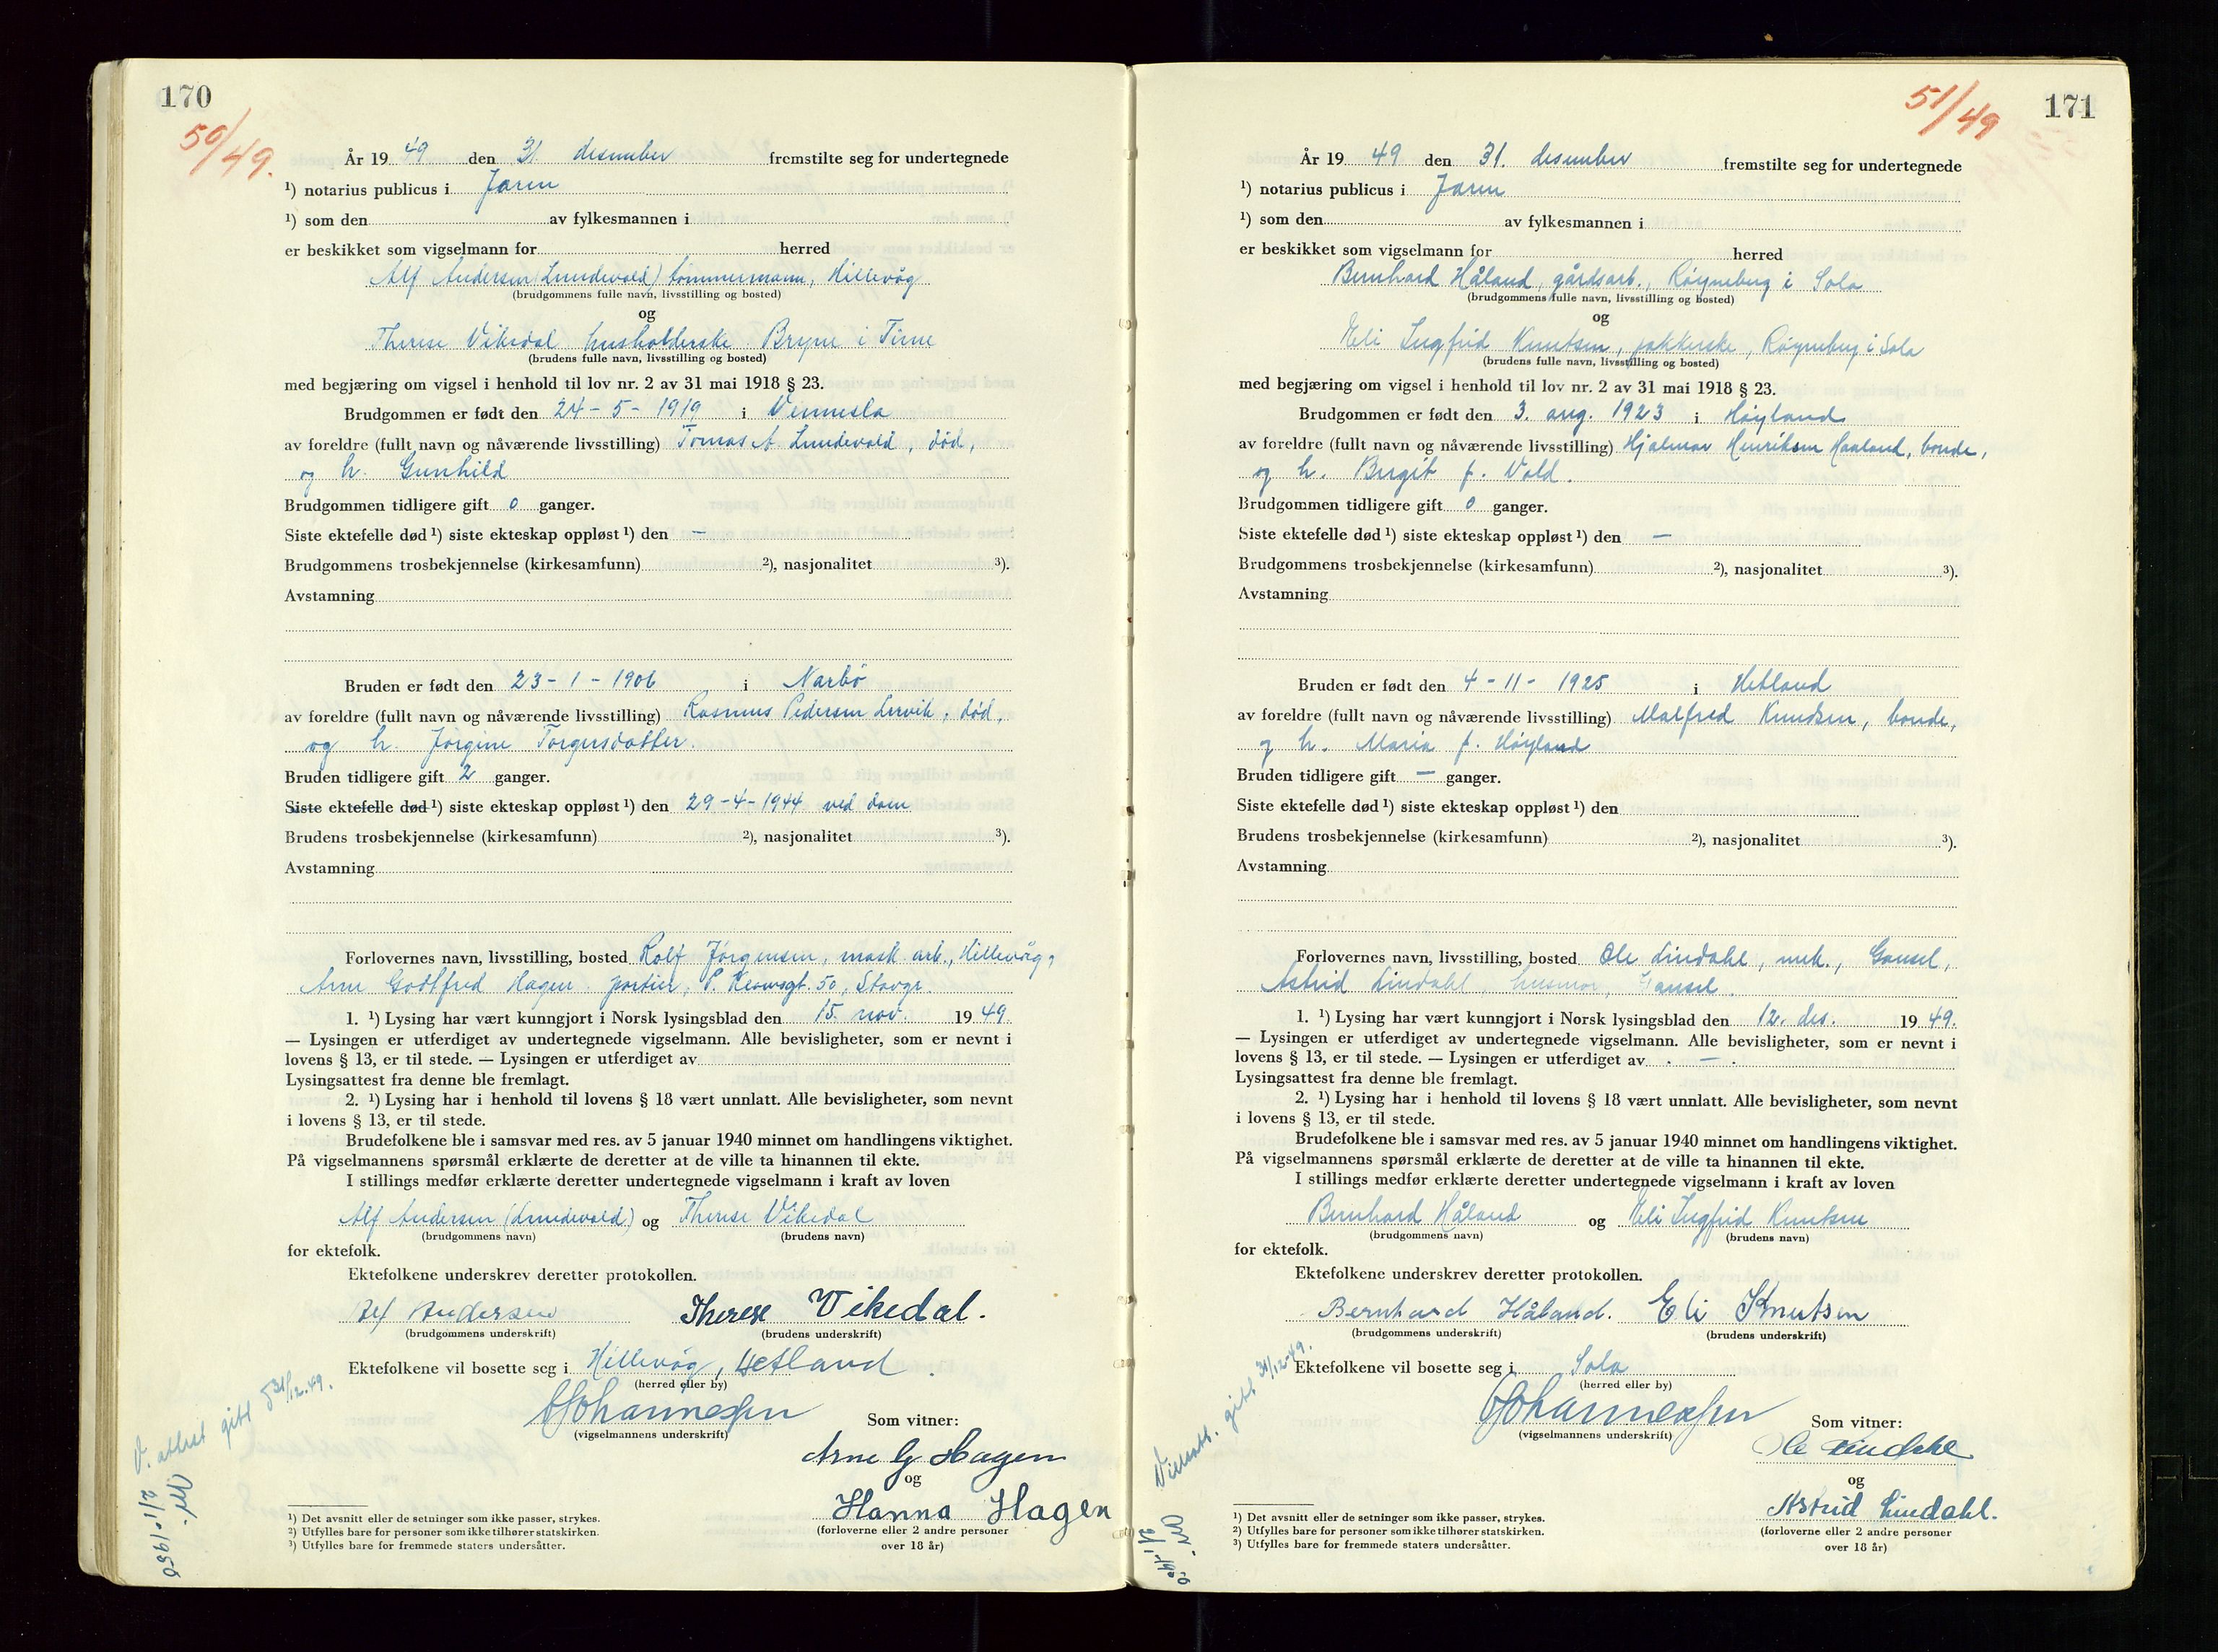 170
50/49.
År 19 49 den 31. desember fremstilte seg for undertegnede
¹) notarius publicus i Jæren
¹) som den av fylkesmannen i
er beskikket som vigselmann for herred
Alf Andersen (Lundevold) tømmermann, Hillevåg
(brudgommens fulle navn, livsstilling og bosted)
og
Therese Vikedal husholderske Bryne i Time
(brudens fulle navn, livsstilling og bosted)
med begjæring om vigsel i henhold til lov nr. 2 av 31 mai 1918 § 23.
Brudgommen er født den 24 - 5 - 1919 i Vennesla
av foreldre (fullt navn og nåværende livsstilling) Tomas A. Lundevold, død,
og h. Gunhild
Brudgommen tidligere gift 0 ganger.
Siste ektefelle død ¹) siste ekteskap oppløst ¹) den —
Brudgommens trosbekjennelse (kirkesamfunn) ²), nasjonalitet ³).
Avstamning
Bruden er født den 23 - 1 - 1906 i Narbø
av foreldre (fullt navn og nåværende livsstilling) Rasmus Pedersen Lervik, død,
og h. Jørgine Torgersdatter.
Bruden tidligere gift 2 ganger.
Siste ektefelle død ¹) siste ekteskap oppløst ¹) den 29-4-1944 ved dom
Brudens trosbekjennelse (kirkesamfunn) ²), nasjonalitet ³).
Avstamning
Forlovernes navn, livsstilling, bosted Rolf Jørgensen, mask. arb., Hillevåg,
Arne Godtfred Hagen portier, P. gt. 50, Stavgr.
1. ¹) Lysing har vært kunngjort i Norsk lysingsblad den 15. nov. 19 49.
— Lysingen er utferdiget av undertegnede vigselmann. Alle bevisligheter, som er nevnt i
lovens § 13, er til stede. — Lysingen er utferdiget av
Lysingsattest fra denne ble fremlagt.
2. ¹) Lysing har i henhold til lovens § 18 vært unnlatt. Alle bevisligheter, som nevnt
i lovens § 13, er til stede.
Brudefolkene ble i samsvar med res. av 5 januar 1940 minnet om handlingens viktighet.
På vigselmannens spørsmål erklærte de deretter at de ville ta hinannen til ekte.
I stillings medfør erklærte deretter undertegnede vigselmann i kraft av loven
Alf Andersen (Lundevold) og Therese Vikedal
(brudgommens navn) (brudens navn)
for ektefolk.
Ektefolkene underskrev deretter protokollen.
Alf Andersen Therese Vikedal.
(brudgommens underskrift) (brudens underskrift)
Ektefolkene vil bosette seg i Hillevåg, Hetland.
(herred eller by)
Johannessen
(vigselmannens underskrift)
Som vitner:
Arne G Hagen
og
Hanna Hagen
(forloverne eller 2 andre personer
over 18 år)
V. attest gitt 31/12-49.
2/1-1950
¹) Det avsnitt eller de setninger som ikke passer, strykes.
²) Utfylles bare for personer som ikke tilhører statskirken.
³) Utfylles bare for fremmede staters undersåtter.
171
51/49
År 19 49 den 31. desember fremstilte seg for undertegnede
¹) notarius publicus i Jæren
¹) som den av fylkesmannen i
er beskikket som vigselmann for herred
Bernhard Håland, gårdsarb., Røyneberg i Sola
(brudgommens fulle navn, livsstilling og bosted)
og
Eli Ingfrid Knutsen, pakkerske, Røyneberg i Sola
(brudens fulle navn, livsstilling og bosted)
med begjæring om vigsel i henhold til lov nr. 2 av 31 mai 1918 § 23.
Brudgommen er født den 3. aug. 1923 i Høyland
av foreldre (fullt navn og nåværende livsstilling) Hjalmar Henriksen Haaland, bonde,
og h. Bergit f. Vold.
Brudgommen tidligere gift 0 ganger.
Siste ektefelle død ¹) siste ekteskap oppløst ¹) den —
Brudgommens trosbekjennelse (kirkesamfunn) ²), nasjonalitet ³).
Avstamning
Bruden er født den 4 - 11 - 1925 i Hetland
av foreldre (fullt navn og nåværende livsstilling) Malfred Knudsen, bonde,
og h. Maria f. Høyland
Bruden tidligere gift — ganger.
Siste ektefelle død ¹) siste ekteskap oppløst ¹) den
Brudens trosbekjennelse (kirkesamfunn) ²), nasjonalitet ³).
Avstamning
Forlovernes navn, livsstilling, bosted Ole Lindahl, mek., Gausel,
Astrid Lindahl, husmor, Gausel.
1. ¹) Lysing har vært kunngjort i Norsk lysingsblad den 12. des. 19 49.
— Lysingen er utferdiget av undertegnede vigselmann. Alle bevisligheter, som er nevnt i
lovens § 13, er til stede. — Lysingen er utferdiget av . — .
Lysingsattest fra denne ble fremlagt.
2. ¹) Lysing har i henhold til lovens § 18 vært unnlatt. Alle bevisligheter, som nevnt
i lovens § 13, er til stede.
Brudefolkene ble i samsvar med res. av 5 januar 1940 minnet om handlingens viktighet.
På vigselmannens spørsmål erklærte de deretter at de ville ta hinannen til ekte.
I stillings medfør erklærte deretter undertegnede vigselmann i kraft av loven
Bernhard Håland og Eli Ingfrid Knutsen
(brudgommens navn) (brudens navn)
for ektefolk.
Ektefolkene underskrev deretter protokollen.
Bernhard Håland. Eli Knutsen
(brudgommens underskrift) (brudens underskrift)
Ektefolkene vil bosette seg i Sola
(herred eller by)
Johannessen
(vigselmannens underskrift)
Som vitner:
Ole Lindahl
og
Astrid Lindahl.
(forloverne eller 2 andre personer
over 18 år)
Vielsatt. gitt 31/12-49.
2/1-1950
¹) Det avsnitt eller de setninger som ikke passer, strykes.
²) Utfylles bare for personer som ikke tilhører statskirken.
³) Utfylles bare for fremmede staters undersåtter.